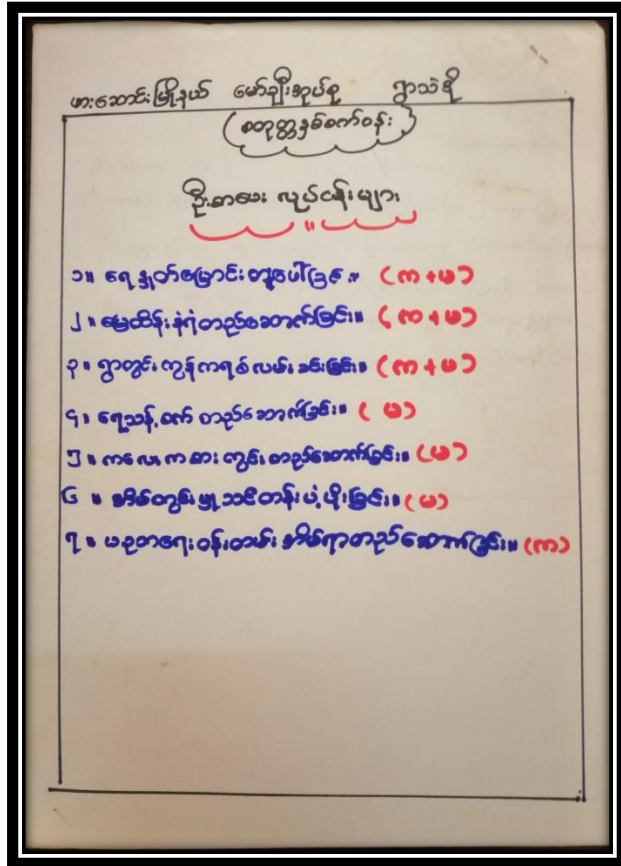 ဖားဆောင်းမြို့နယ် မော်ချီးအုပ်စု ရွာသစ်ဒို
(စတုတ္ထနှစ်စက်ဝန်း)
ဦးစားပေး လုပ်ငန်းများ
၁။ ရေနှုတ်မြောင်းတူးဖော်ခြင်း။ (က+မ)
၂။ မြေထိန်းနံရံတည်ဆောက်ခြင်း။ (က+မ)
၃။ ရွာတွင်းကွန်ကရစ်လမ်းခင်းခြင်း။ (က+မ)
၄။ ရေသန့်စက် တည်ဆောက်ခြင်း။ (မ)
၅။ ကလေးကစားကွင်းတည်ဆောက်ခြင်း။ (မ)
၆။ အိမ်တွင်းမှု သင်တန်းပံ့ပိုးခြင်း။ (မ)
၇။ ဝန်ထမ်းအိမ်ရာတည်ဆောက်ခြင်း။ (က)